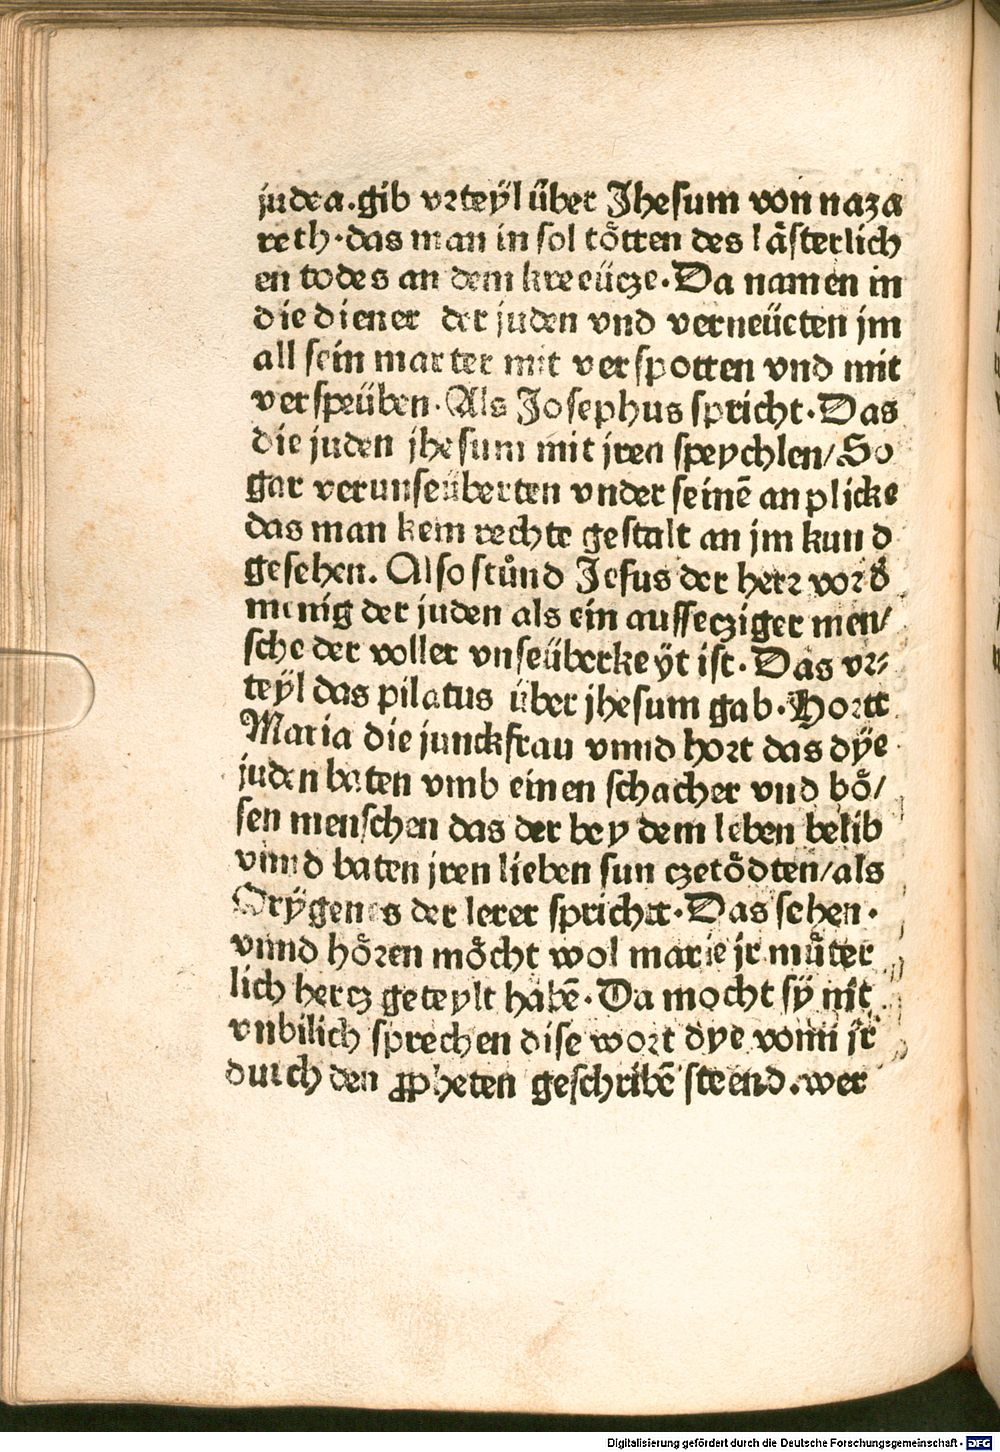 judea.gib vrteÿl über Jhesum von naza
reth.das man in sol tötten des lästerlich
en todes an dem kreeücze.Da namen in
die diener der juden vnd verneücten jm
all sein marter mit verspotten vnd mit
verspeüben.Als Josephus spricht.Das
die juden jhesum mit jren speychlen/So
gar verunseüberten vnder seinē anplicke
das man kein rechte gestalt an jm kund
gesehen. Also stůnd Jesus der herr vor d̕
menig der juden als ein aussecziger men/
sche der voller vnseüberkeÿt ist.Das vr⸗
teÿl das pilatus über jhesum gab.Hortt
Maria die junckfrau vnnd hort das dÿe
juden baten vmb einen schacher vnd bö/
sen menschen das der bey dem leben belib
vnnd baten jren lieben sun czetödten/als
Orÿgenes der lerer sprichet.Das sehen.
vnnd hören möcht wol marie jr můter
lich hercz geteylt habē.Da mocht sÿ nit
vnbilich sprechen dise wort dye vonn jr
durch den ꝓpheten geschribē steend.wer
Digitalisierung gefördert durch die Deutsche Forschungsgemeinschaft - DFG